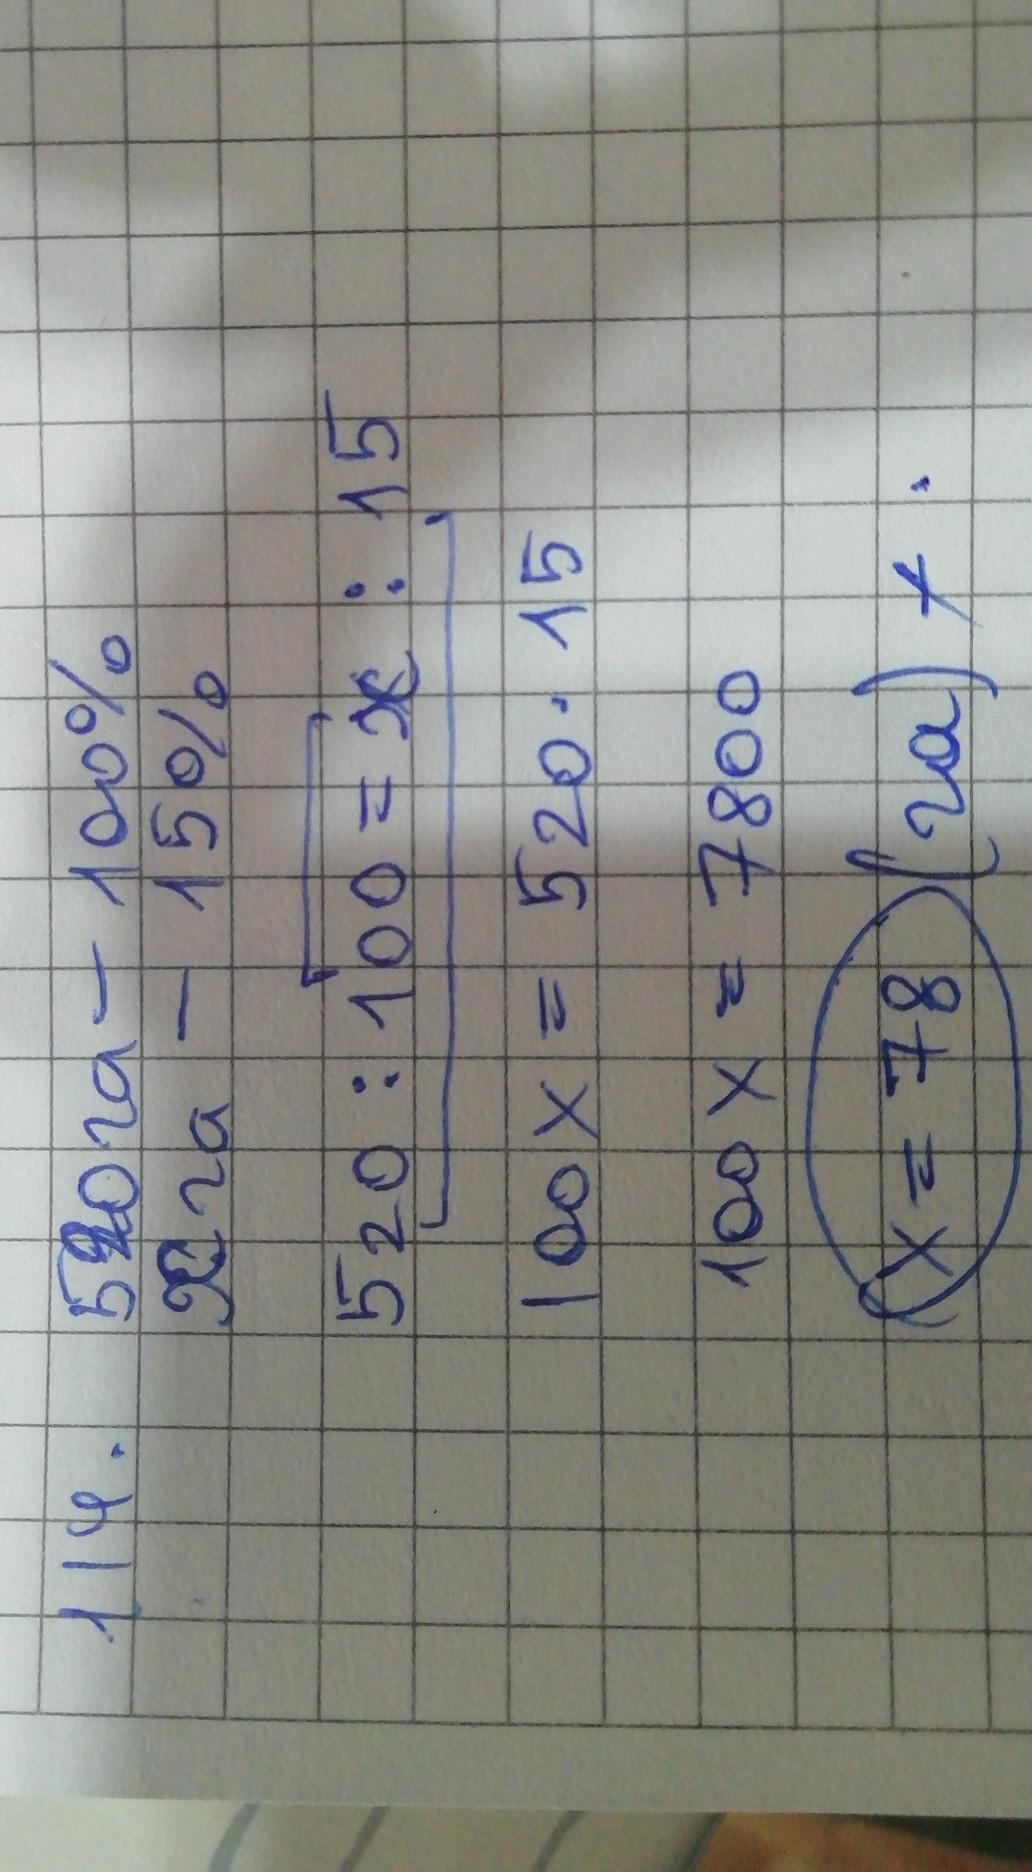 114. 520 га - 100%
х га - 15%
520 : 100 = х : 15
100 х = 520 · 15
100 х = 7800
х = 78 (га)